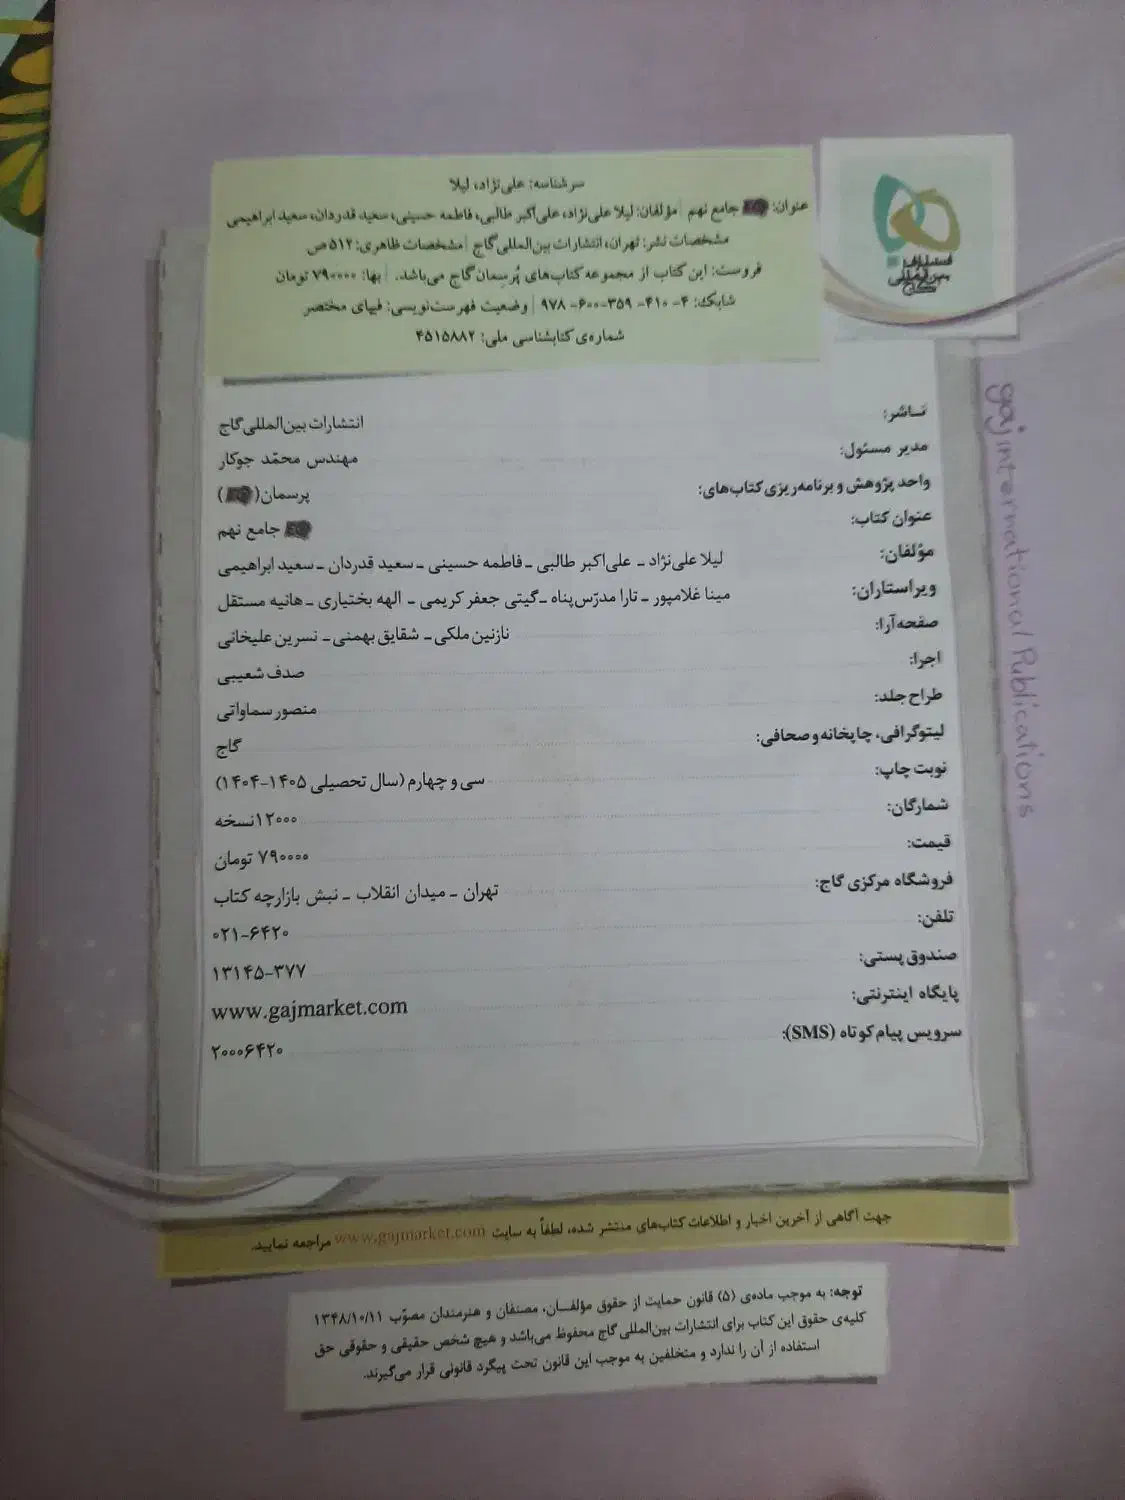 سرشناسه: علی‌نژاد، لیلا
عنوان: EQ جامع نهم | مؤلفان: لیلا علی‌نژاد، علی‌اکبر طالبی، فاطمه حسینی، سعید قدردان، سعید ابراهیمی
مشخصات نشر: تهران، انتشارات بین‌المللی گاج | مشخصات ظاهری: ۵۱۲ ص
فروست: این کتاب از مجموعه کتاب‌های پُرسِمان گاج می‌باشد. | بها: ۷۹۰۰۰۰ تومان
شابک: ۴- ۴۱۰- ۳۵۹-۶۰۰- ۹۷۸ | وضعیت فهرست‌نویسی: فیپای مختصر
شماره‌ی کتابشناسی ملی: ۴۵۱۵۸۸۲
انتشارات بین‌المللی گاج
gaj international Publications
ناشر: انتشارات بین‌المللی گاج
مدیر مسئول: مهندس محمّد جوکار
واحد پژوهش و برنامه‌ریزی کتاب‌های: پرسمان (EQ)
عنوان کتاب: EQ جامع نهم
مؤلفان: لیلا علی‌نژاد ـ علی‌اکبر طالبی ـ فاطمه حسینی ـ سعید قدردان ـ سعید ابراهیمی
ویراستاران: مینا غلامپور ـ تارا مدرّس‌پناه ـ گیتی جعفر کریمی ـ الهه بختیاری ـ هانیه مستقل
صفحه‌آرا: نازنین ملکی ـ شقایق بهمنی ـ نسرین علیخانی
اجرا: صدف شعیبی
طراح جلد: منصور سماواتی
لیتوگرافی، چاپخانه و صحافی: گاج
نوبت چاپ: سی و چهارم (سال تحصیلی ۱۴۰۵-۱۴۰۴)
شمارگان: ۱۲۰۰۰ نسخه
قیمت: ۷۹۰۰۰۰ تومان
فروشگاه مرکزی گاج: تهران ـ میدان انقلاب ـ نبش بازارچه کتاب
تلفن: ۰۲۱-۶۴۲۰
صندوق پستی: ۱۳۱۴۵-۳۷۷
پایگاه اینترنتی: www.gajmarket.com
سرویس پیام کوتاه (SMS): ۲۰۰۰۶۴۲۰
جهت آگاهی از آخرین اخبار و اطلاعات کتاب‌های منتشر شده، لطفاً به سایت www.gajmarket.com مراجعه نمایید.
توجه: به موجب ماده‌ی (۵) قانون حمایت از حقوق مؤلفــان، مصنفان و هنرمندان مصوّب ۱۳۴۸/۱۰/۱۱
کلیه‌ی حقوق این کتاب برای انتشارات بین‌المللی گاج محفوظ می‌باشد و هیچ شخص حقیقی و حقوقی حق
استفاده از آن را ندارد و متخلفین به موجب این قانون تحت پیگرد قانونی قرار می‌گیرند.